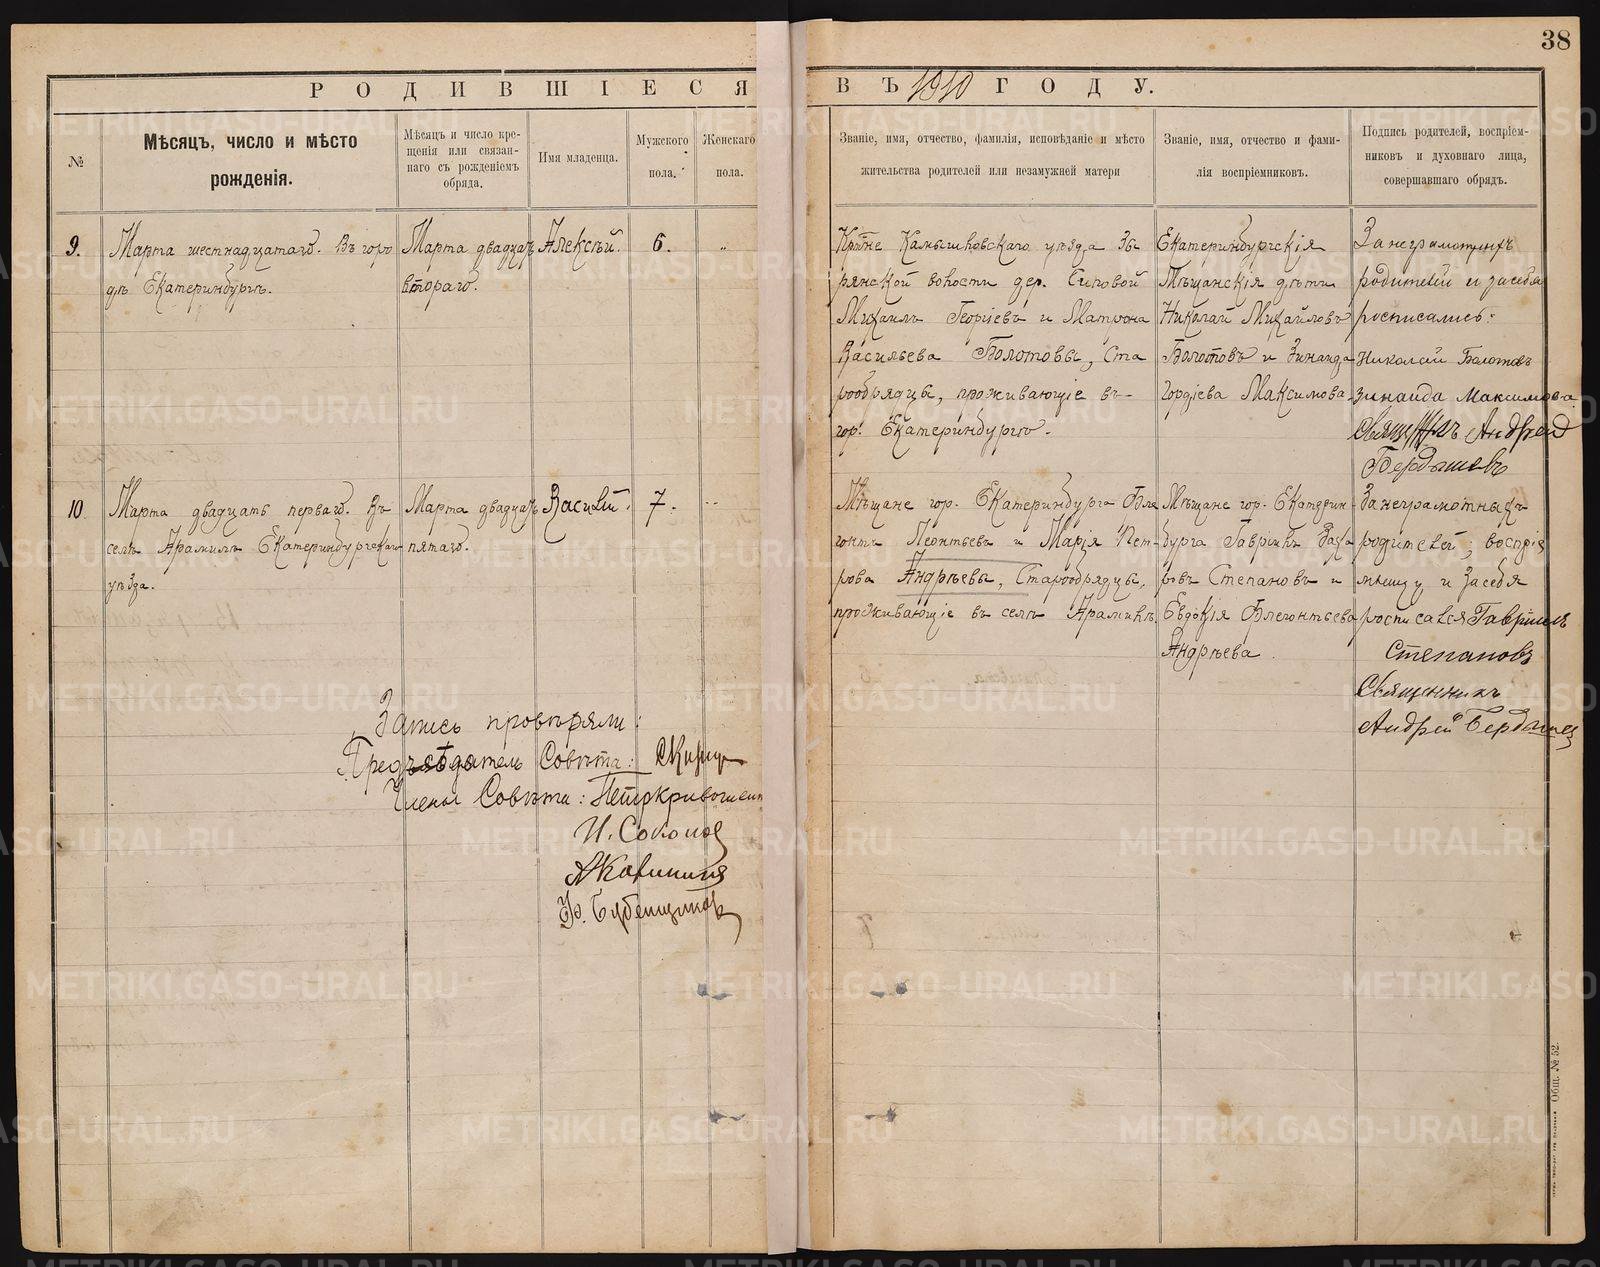 38
РОДИВШІЕСЯ ВЪ 1910 ГОДУ.
№
Мѣсяцъ, число и мѣсто
рожденія.
Мѣсяцъ и число кре-
щенія или связан-
наго съ рожденіемъ
обряда.
Имя младенца.
Мужского
пола.
Женскаго
пола.
Званіе, имя, отчество, фамилія, исповѣданіе и мѣсто
жительства родителей или незамужней матери
Званіе, имя, отчество и фами-
лія воспріемниковъ.
Подпись родителей, воспріем-
никовъ и духовнаго лица,
совершавшаго обрядъ.
9.
Марта шестнадцатаго. Въ горо
дѣ Екатеринбургѣ.
Марта двадцать
втораго.
Алексѣй.
6.
„
Кр-не Камышловскаго уѣзда Зы
рянской волости дер.
Михаилъ Георгіевъ и Матрона
Васильева Болотовы, Ста
рообрядцы, проживающіе въ-
гор. Екатеринбургѣ.
Екатеринбургскія
Мѣщанскія дѣти
Николай Михайловъ
Болотовъ и Зинаида
Гордіева Максимова.
За неграмотныхъ
родителей и за себя
росписались:
Николай Болотовъ
Зинаида Максимова
Священникъ Андрей
Бердышевъ
10.
Марта двадцать перваго. Въ
селѣ Арамилѣ Екатеринбургскаго
уѣзда.
Марта двадцать
пятаго.
Василій.
7.
„
Мѣщане гор. Екатеринбурга Фле
гонтъ Леонтьевъ и Марія Пет-
рова Андрѣевы, Старообрядцы,
проживающіе въ селѣ Арамилѣ.
Мѣщане гор. Екатерин-
бурга Гавріилъ Заха
ровъ Степановъ и
Евдокія Флегонтьева
Андрѣева.
За неграмотныхъ
родителей, воспріе
мницу и за себя
росписался Гавріилъ
Степановъ
Священникъ
Андрей Бердышев
Запись провѣряли:
Предсѣдатель Совѣта:
Члены Совѣта:
И. Соколов
А Калинин
METRIKI.GASO-URAL.RU
Общ. № 52.